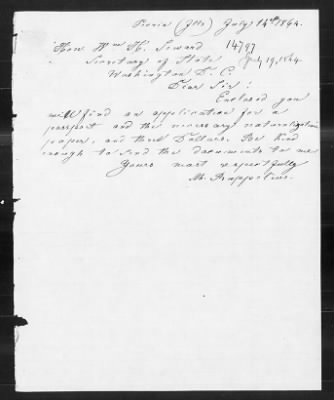 Peoria (Ills) July 14th 1864.
Hon. Wm H. Seward
14797
Secretary of State
July 19, 1864.
Washington D. C.
Dear Sir:
Enclosed you
will find an application for a
passport and the necessary naturalization
papers, and three Dollars. Be kind
enough to send the documents to me
Yours most respectfully
M.